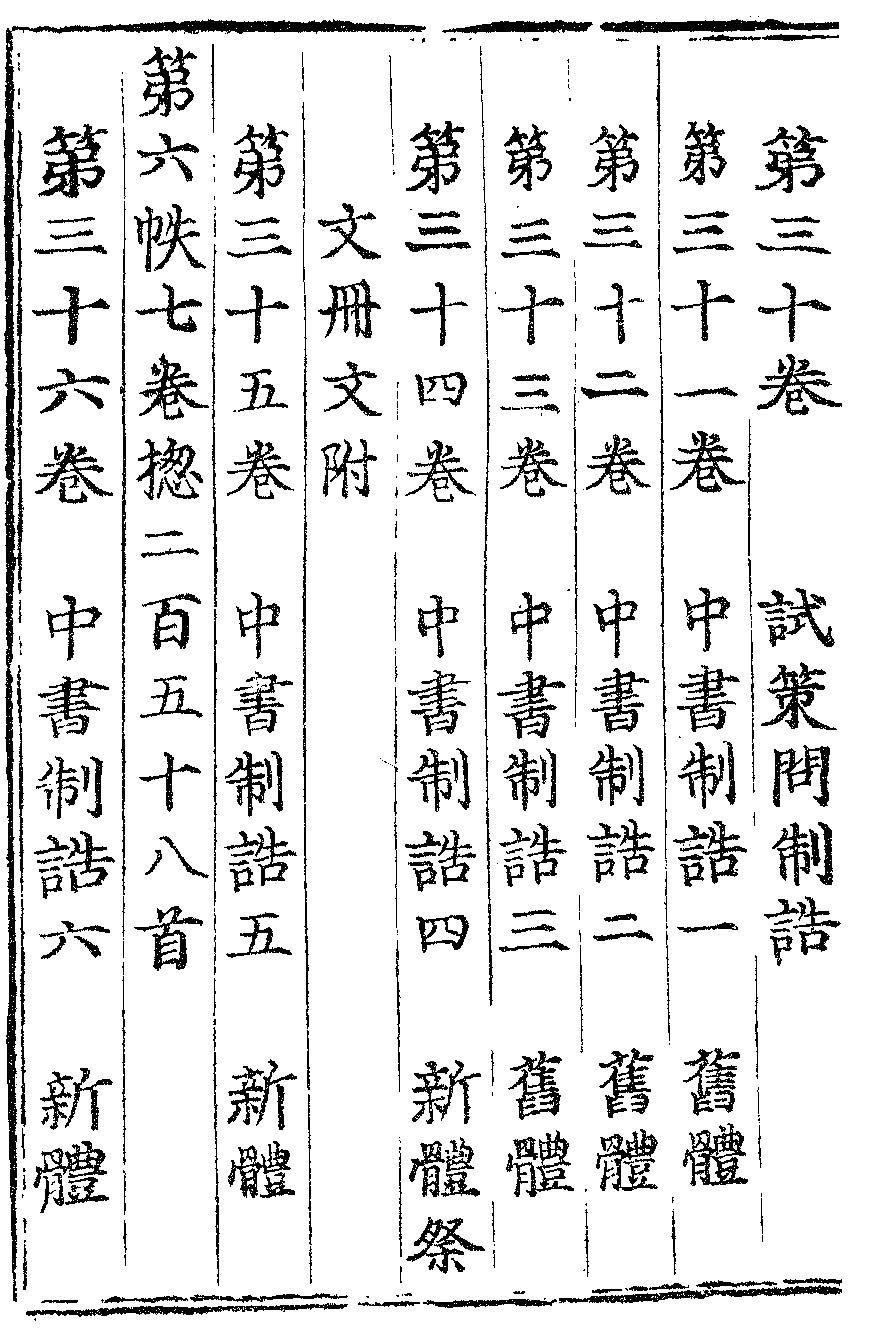 第三十卷　試策問制誥
第三十一卷　中書制誥一　舊體
第三十二卷　中書制誥二　舊體
第三十三卷　中書制誥三　舊體
第三十四卷　中書制誥四　新體祭
文冊文附
第三十五卷　中書制誥五　新體
第六帙七卷揔二百五十八首
第三十六卷　中書制誥六　新體